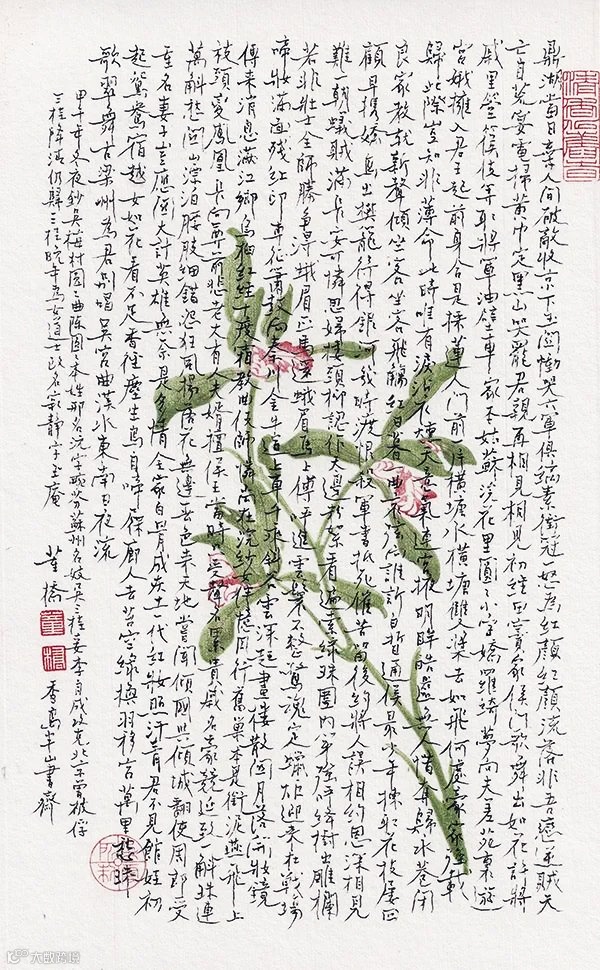 鼎湖當日棄人間破敵收京下玉關慟哭六軍俱縞素衝冠一怒為紅顏紅顏流落非吾戀逆賊天
亡自荒宴電掃黃巾定黑山哭罷君親再相見相見初經田竇家侯門歌舞出如花許將
戚里箜篌伎等取將軍油壁車家本姑蘇浣花里圓圓小字嬌羅綺夢向夫差苑裏遊
宮娥擁入君王起前身合是採蓮人門前一片橫塘水橫塘雙槳去如飛何處豪家強載
歸此際豈知非薄命此時唯有淚沾衣熏天意氣連宮掖明眸皓齒無人惜奪歸永巷閉
良家教就新聲傾坐客坐客飛觴紅日暮一曲哀弦向誰訴白皙通侯最少年揀取花枝屢回
顧早携嬌鳥出樊籠待得銀河幾時渡恨殺軍書抵死催苦留後約將人誤相約恩深相見
難一朝蟻賊滿長安可憐思婦樓頭柳認作天邊粉絮看遍索綠珠圍內第強呼絳樹出雕欄
若非壯士全師勝爭得蛾眉匹馬還蛾眉馬上傳呼進雲鬟不整驚魂定蠟炬迎來在戰場
啼妝滿面殘紅印專征簫鼓向秦川金牛道上車千乘斜谷雲深起畫樓散關月落開妝鏡
傳来消息滿江鄉烏桕紅經十度霜教曲伎師憐尚在浣紗女伴憶同行舊巢本是銜泥燕飛上
枝頭變鳳凰長向尊前悲老大有人夫婿擅侯王當時祗受聲名累貴戚名豪競延致一斛珠連
萬斛愁關山漂泊腰肢細錯怨狂風揚落花無邊春色來天地嘗聞傾國與傾城翻使周郎受
重名妻子豈應關大計英雄無奈是多情全家白骨成灰土一代紅妝照汗青君不見館娃初
起鴛鴦宿越女如花看不足香徑塵生鳥自啼屧廊人去苔空綠換羽移宮萬里愁珠
歌翠舞古梁州為君別唱吳宮曲漢水東南日夜流
甲午年冬夜鈔吳梅村圓圓曲陳圓圓本姓邢名沅字畹芬蘇州名妓吳三桂妾李自成攻克北京曾被俘
三桂降清仍歸三桂晚年為女道士改名寂靜字玉庵
董橋
董
橋
香島半山書齋